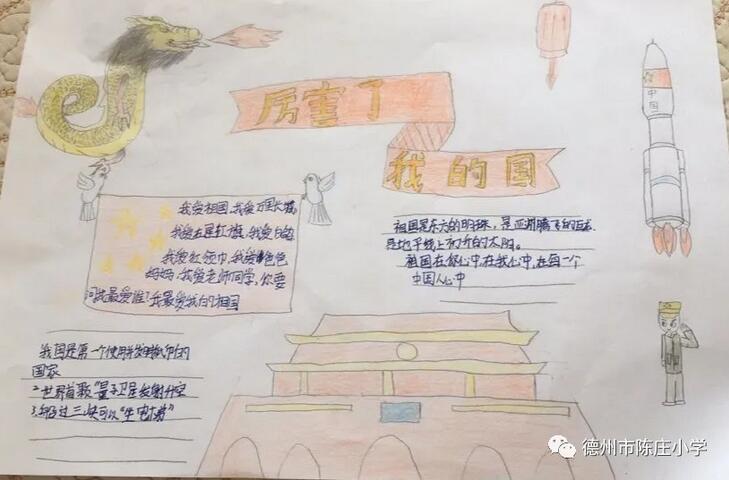 厉害了
我的国
中国
我爱祖国,我爱万里长城,
我爱五星红旗,我爱白鸽
我爱红领巾,我爱爸爸
妈妈,我爱老师同学,你要
问我最爱谁?我最爱我的祖国
祖国是东方的明珠,是亚洲腾飞的巨龙
是地平线上初升的太阳。
祖国在你心中,在我心中,在每一个
中国人心中
我国是第一个使用并发明
的
国家
2.世界首颗"量子卫星发射升空
3.
德州市陈庄小学